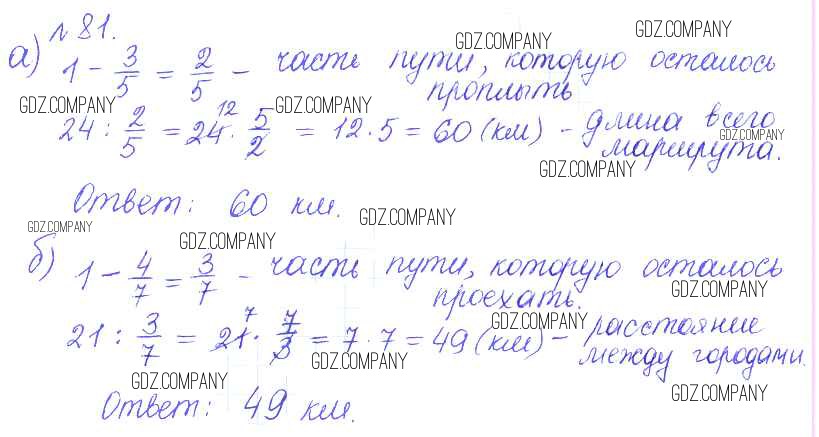 № 81.
GDZ.COMPANY
GDZ.COMPANY
а) 1 - 3/5 = 2/5 - часть пути, которую осталось
проплыть
GDZ.COMPANY
GDZ.COMPANY
24 : 2/5 = 24 12 · 5/2 = 12 · 5 = 60 (км) - длина всего
GDZ.COMPANY
маршрута.
GDZ.COMPANY
Ответ: 60 км.
GDZ.COMPANY
GDZ.COMPANY
GDZ.COMPANY
б) 1 - 4/7 = 3/7 - часть пути, которую осталось
проехать.
GDZ.COMPANY
21 : 3/7 = 21 7 · 7/3 = 7 · 7 = 49 (км) - расстояние
GDZ.COMPANY
между городами.
GDZ.COMPANY
GDZ.COMPANY
GDZ.COMPANY
Ответ: 49 км.